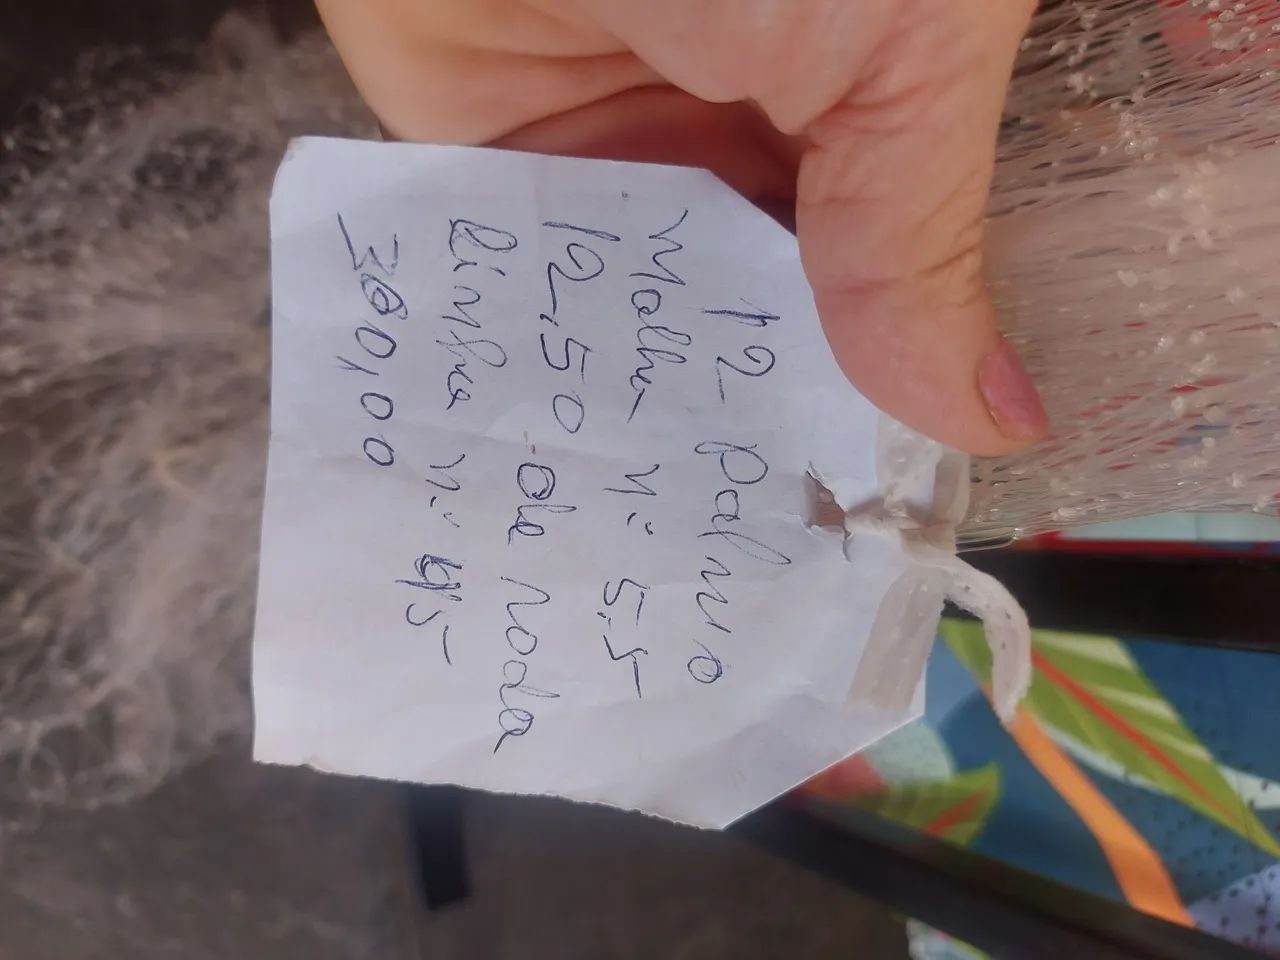 12 Palmo
Malha n: 5.5
12.50 de roda
Linha n: 45
300,00